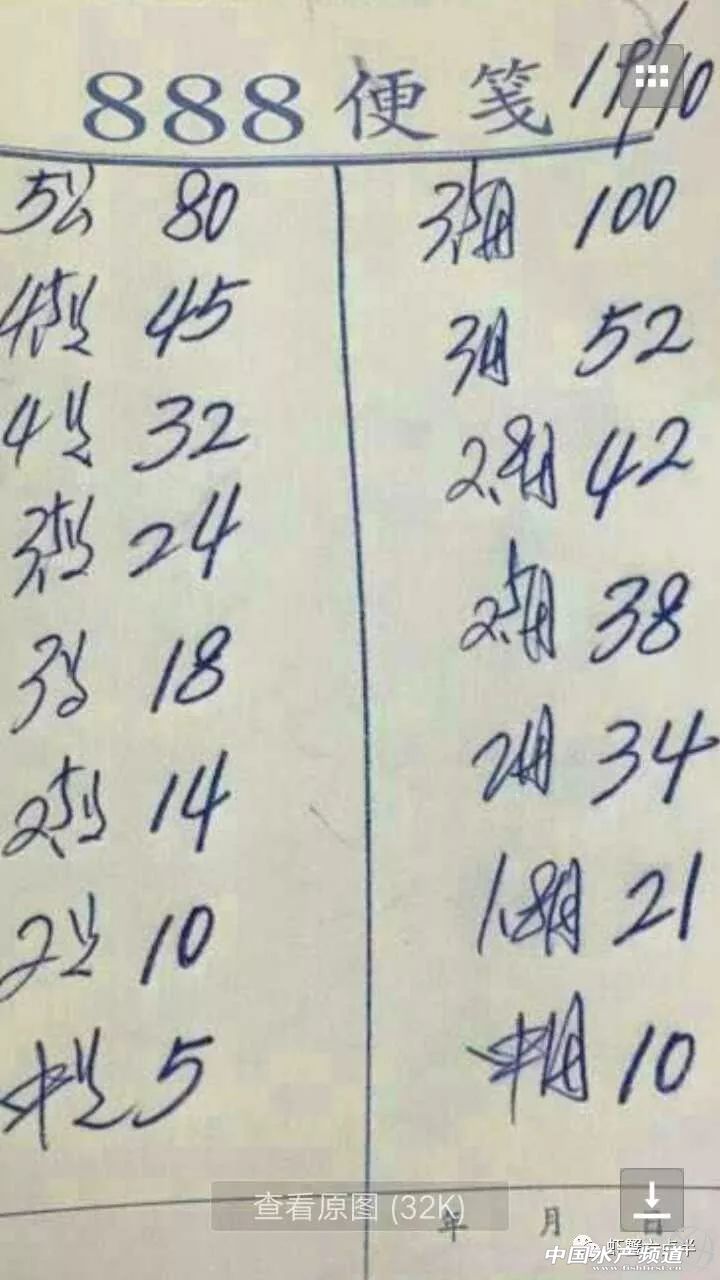 888便笺
5公 80 3.5母 100
4.5公 45 3母 52
4公 32 2.8母 42
3.5公 24 2.5母 38
3公 18 2母 34
2.5公 14 1.8母 21
2公 10
公 5 母 10
查看原图 (32K)
年 月 日
虾蟹六点半
中国水产频道
www.fishfirst.cn